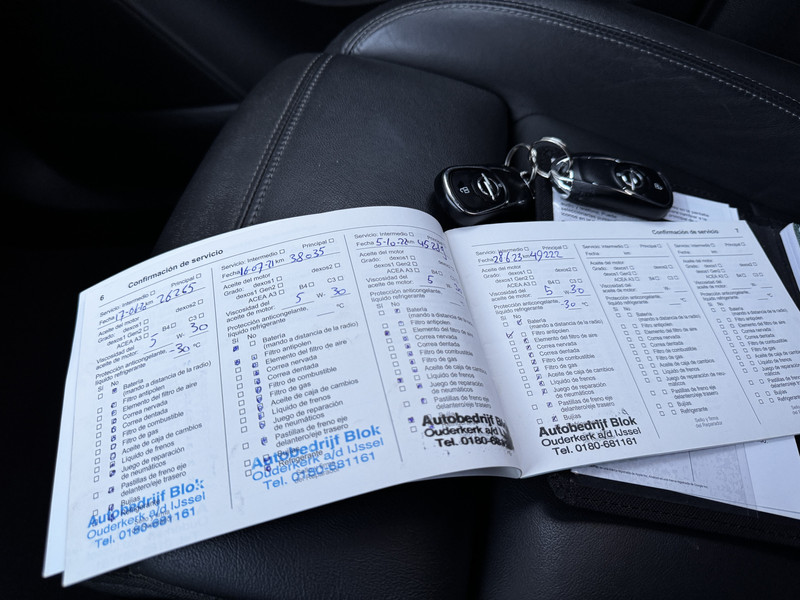 6
Confirmación de servicio
Servicio: Intermedio Principal
Fecha 17-06-20 km 26265
Aceite del motor
Grado: dexos1 dexos2
dexos1 Gen2
ACEA A3 B4 C3
Viscosidad del
aceite de motor: 5 W- 30
Protección anticongelante:
líquido refrigerante -30 °C
Sí No
Batería
(mando a distancia de la radio)
Filtro antipolen
Elemento del filtro de aire
Correa nervada
Correa dentada
Filtro de combustible
Filtro de gas
Aceite de caja de cambios
Líquido de frenos
Juego de reparación
de neumáticos
Pastillas de freno eje
delantero/eje trasero
Bujías
Autobedrijf Blok
Ouderkerk a/d IJssel
Tel. 0180-681161
Servicio: Intermedio Principal
Fecha 16-07-21 km 38035
Aceite del motor
Grado: dexos1 dexos2
dexos1 Gen2
ACEA A3 B4 C3
Viscosidad del
aceite de motor: 5 W- 30
Protección anticongelante:
líquido refrigerante °C
Sí No
Batería
(mando a distancia de la radio)
Filtro antipolen
Elemento del filtro de aire
Correa nervada
Correa dentada
Filtro de combustible
Filtro de gas
Aceite de caja de cambios
Líquido de frenos
Juego de reparación
de neumáticos
Pastillas de freno eje
delantero/eje trasero
Bujías
Refrigerante
Autobedrijf Blok
Ouderkerk a/d IJssel
Tel. 0180-681161
Servicio: Intermedio
Fecha 5-10-22 km
Aceite del motor
Grado: dexos1
dexos1 Gen2
ACEA A3
Viscosidad del
aceite de motor: 5
Protección anticongelante:
líquido refrigerante
Sí No
Batería
(mando a distancia de la radio)
Filtro antipolen
Elemento del filtro de aire
Correa nervada
Correa dentada
Filtro de combustible
Filtro de gas
Aceite de caja de cambios
Líquido de frenos
Juego de reparación
de neumáticos
Pastillas de freno eje
delantero/eje trasero
Autobedrijf Blok
Ouderkerk a/d IJssel
Tel. 0180-68
Confirmación de servicio
7
Servicio: Intermedio Principal
Fecha 28-6-23 km 49222
Aceite del motor
Grado: dexos1 dexos2
dexos1 Gen2
ACEA A3 B4 C3
Viscosidad del
aceite de motor: 5 W- 30
Protección anticongelante:
líquido refrigerante -30 °C
Sí No
Batería
(mando a distancia de la radio)
Filtro antipolen
Elemento del filtro de aire
Correa nervada
Correa dentada
Filtro de combustible
Filtro de gas
Aceite de caja de cambios
Líquido de frenos
Juego de reparación
de neumáticos
Pastillas de freno eje
delantero/eje trasero
Bujías
Autobedrijf Blok
Ouderkerk a/d IJssel
Tel. 0180-681161
Servicio: Intermedio Principal
Fecha km
Aceite del motor
Grado: dexos1 dexos2
dexos1 Gen2
ACEA A3 B4 C3
Viscosidad del
aceite de motor: W-
Protección anticongelante:
líquido refrigerante °C
Sí No
Batería
(mando a distancia de la radio)
Filtro antipolen
Elemento del filtro de aire
Correa nervada
Correa dentada
Filtro de combustible
Filtro de gas
Aceite de caja de cambios
Líquido de frenos
Juego de reparación
de neumáticos
Pastillas de freno eje
delantero/eje trasero
Bujías
Refrigerante
Sello y firma
del Reparador
Servicio: Intermedio Principal
Fecha km